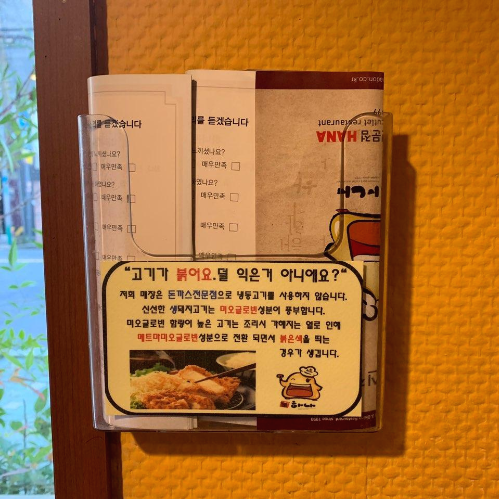 를 듣겠습니다
를 듣겠습니다
매우만족
매우만족
매우만족
매우만족
cutlet restaurant
문점 HANA
"고기가 붉어요.덜 익은거 아니에요?"
저희 매장은 돈까스전문점으로 냉동고기를 사용하지 않습니다.
신선한 생돼지고기는 미오글로빈성분이 풍부합니다.
미오글로빈 함량이 높은 고기는 조리시 가해지는 열로 인해
메트마미오글로빈성분으로 전환 되면서 붉은색을 띄는
경우가 생깁니다.
하나